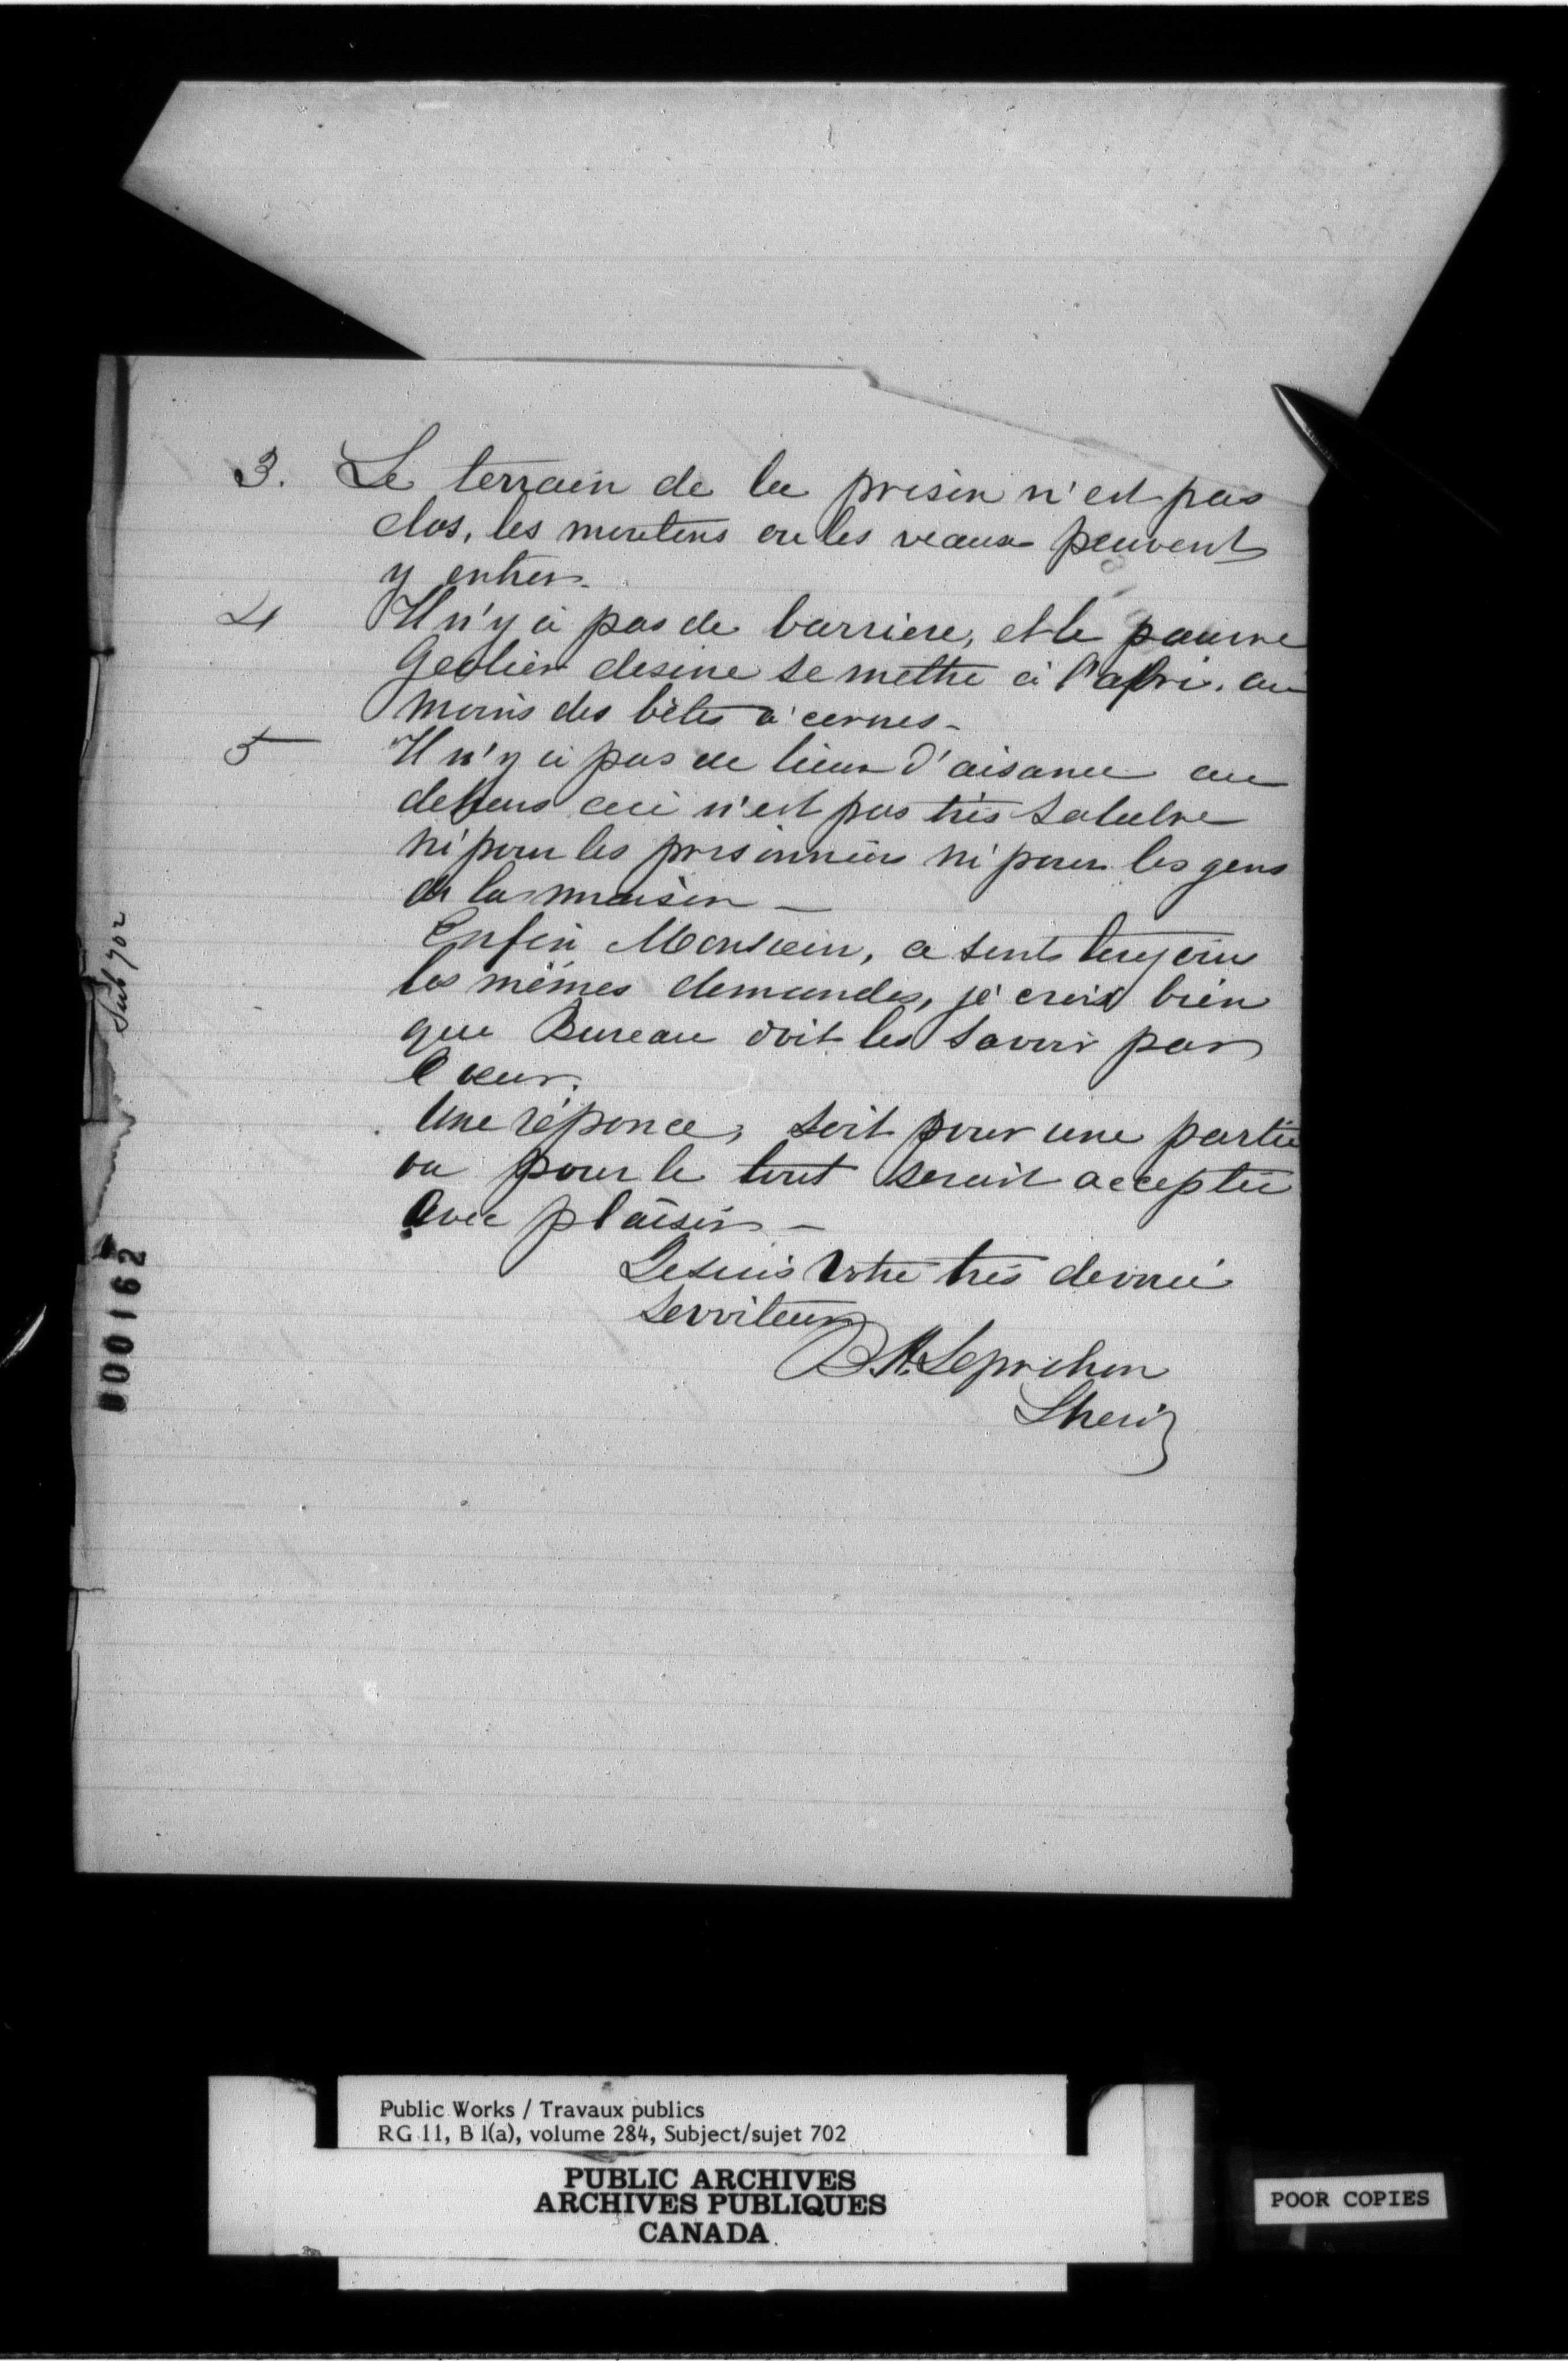 3. Le terrain de la prison n'est pas
clos, les moutons ou les veaux peuvent
y entrer.
4 Il n'y a pas de barriere, et le pauvre
Geolier desire se mettre à l'abri, au
moins des bêtes à cornes -
5 Il n'y a pas de lieux d'aisance au
dehors ceci n'est pas très salubre
ni pour les prisonniers ni pour les gens
de la maison -
Enfin Monsieur, ce sont toujours
les mêmes demandes, je crois bien
que Bureau doit les savoir par
Coeur.
Une réponce, soit pour une partie
ou pour le tout serait acceptée
avec plaisir -
Je suis votre très devoué
Serviteur
B. H. Leprohon
Sherif
Sub 702
000162
Public Works / Travaux publics
RG 11, B 1(a), volume 284, Subject/sujet 702
PUBLIC ARCHIVES
ARCHIVES PUBLIQUES
CANADA
POOR COPIES